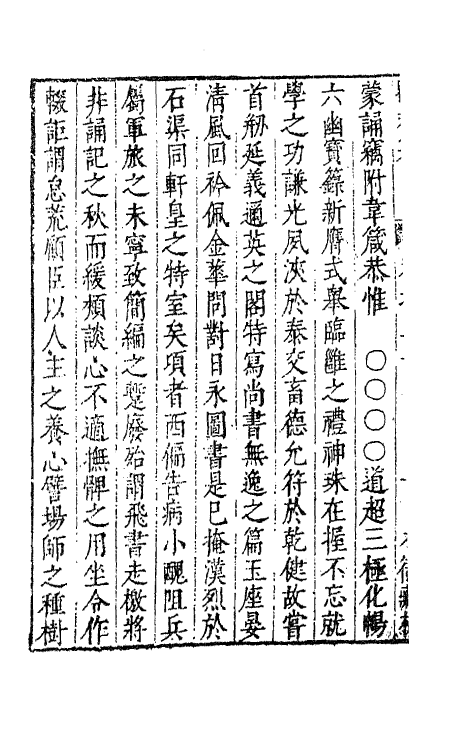 蒙誦竊附韋箴恭惟　〇〇〇〇道超三極化暢
六幽寶籙新膺式舉臨雝之禮神珠在握不忘就
學之功謙光夙浹於泰交畜德允符於乾健故嘗
首刱延義邇英之閣特寫尚書無逸之篇玉座晏
清風回衿佩金華問對日永圖書是已掩漢烈於
石渠同軒皇之特室矣項者西偏告病小醜阻兵
屬軍旅之未寧致簡編之蹔廢殆謂飛書走檄將
非誦記之秋而緩頰談心不適撫髀之用坐令作
輟詎謂怠荒顧臣以人主之養心譬場師之種樹